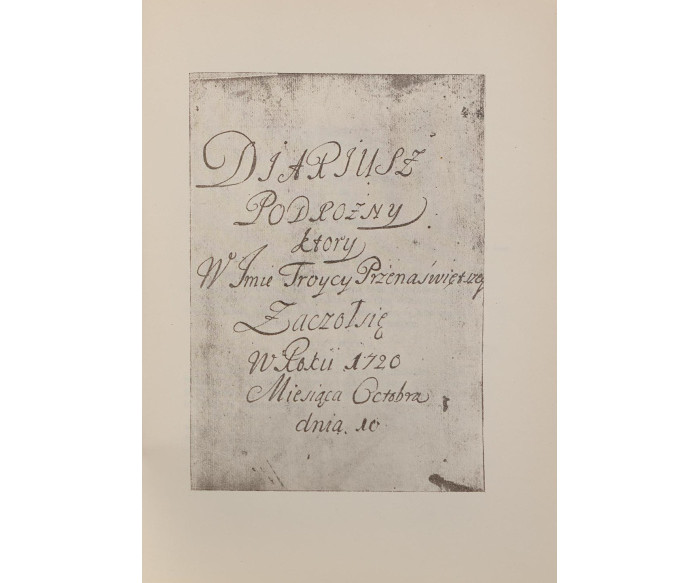 DIARIUSZ
PODROZNY
ktory
W Jmie Troycy Przenaświętszey
Zaczołsię
W Roku 1720
Miesiąca Octobra
dnia. 10